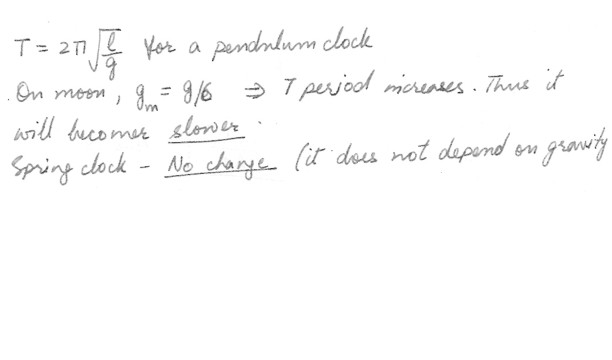 T = 2π√l/g for a pendulum clock
On moon, gm = g/6 ⇒ T period increases. Thus it
will becomes slower.
Spring clock - No change (it does not depend on gravity